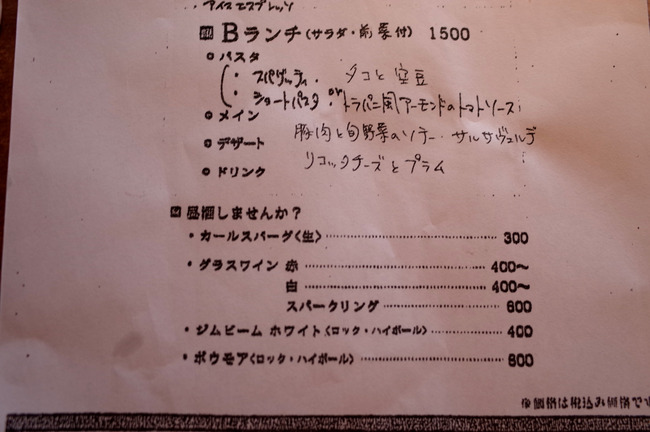 アイスエスプレッソ
Bランチ(サラダ・前菜付) 1500
パスタ
・スパゲッティ・ タコと空豆
・ショートパスタ or トラパニ風アーモンドのトマトソース
メイン 豚肉と旬野菜のソテー・サルサヴェルデ
デザート リコッタチーズとプラム
ドリンク
昼酒しませんか?
・カールスバーグ〈生〉 300
・グラスワイン 赤 400〜
白 400〜
スパークリング 600
・ジムビーム ホワイト〈ロック・ハイボール〉 400
・ボウモア〈ロック・ハイボール〉 600
※価格は税込み価格です